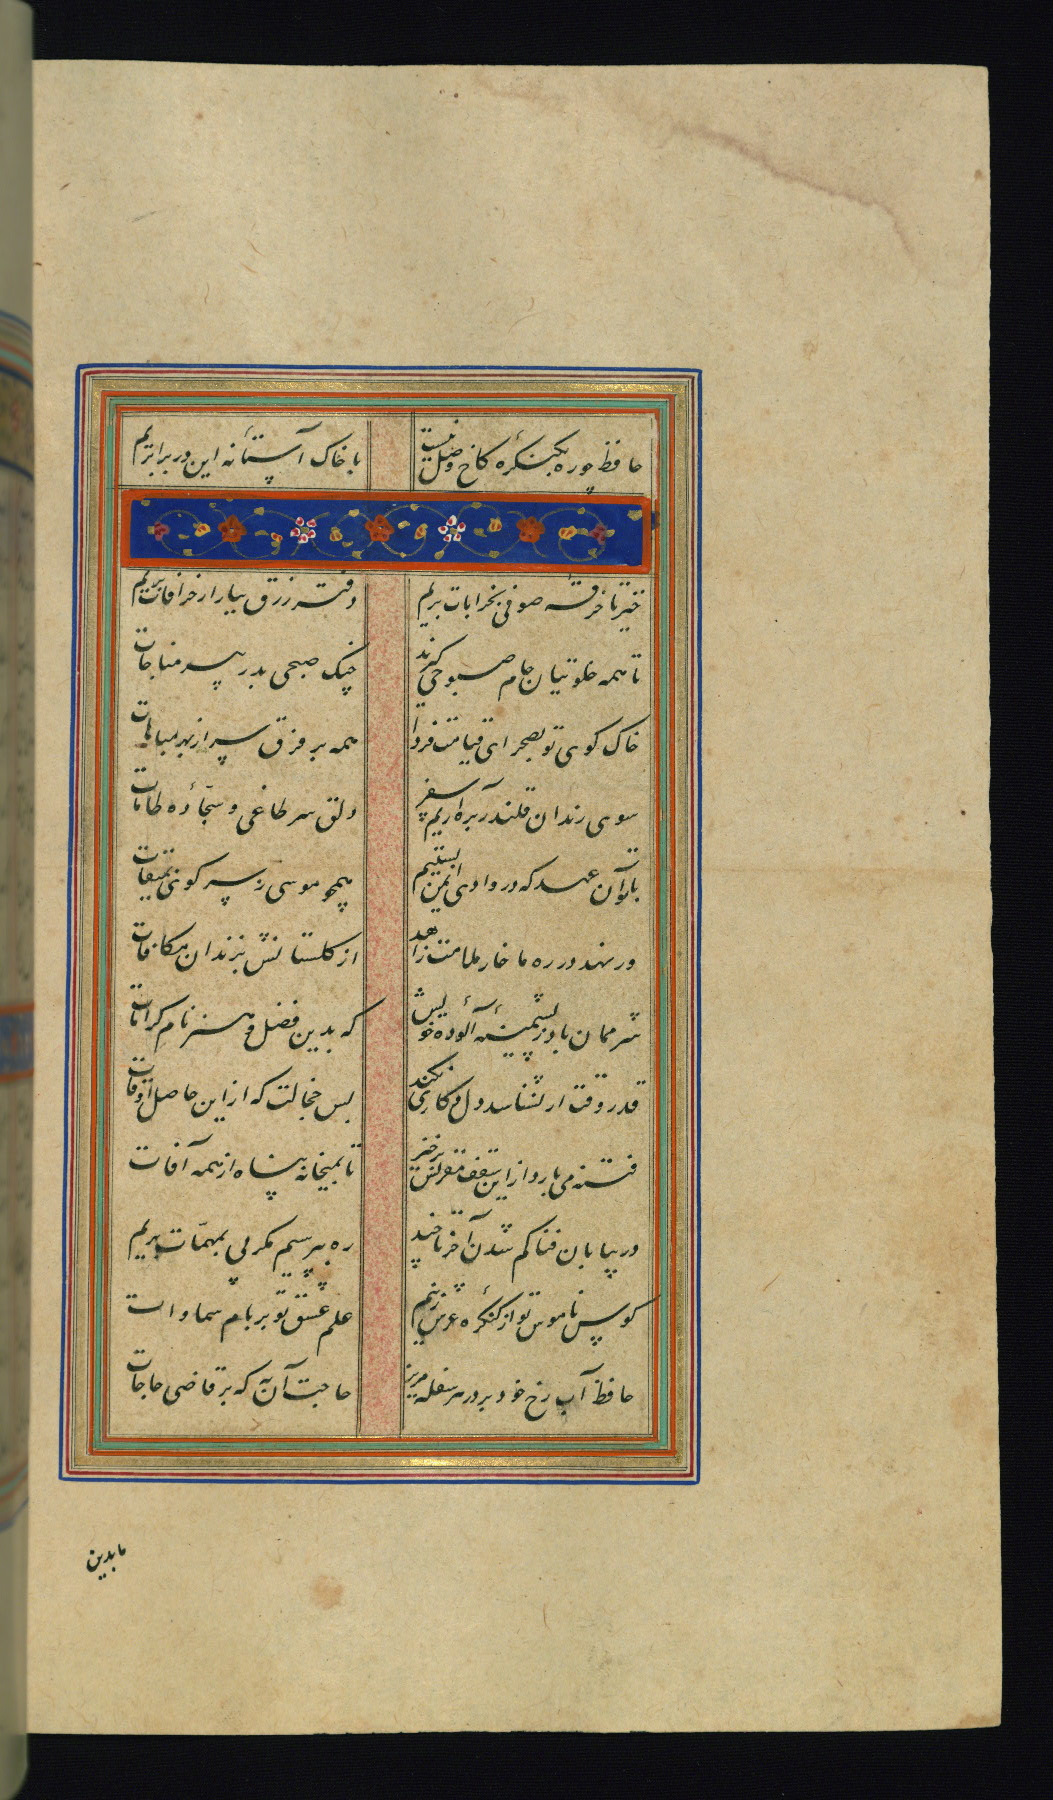 حافظ چو ره بکنگره کاخ وصل نیست با خاک آستانه این در بسر بریم
خیز تا خرقه صوفی بخرابات بریم دفتر زرق ببازار خرافات بریم
تا همه خلوتیان جام صبوحی گیرند چنگ صبحی بدر پیر مناجات
خاک کوی تو بصحرای قیامت فردا همه بر فرق سر از بهر مباهات
سوی رندان قلندر بره آریم سفر دلق سر طاغی و سجاده طامات
با تو آن عهد که در وادی ایمن بستیم همچو موسی ارنی گوی بمیقات
ور نهد در ره ما خار ملامت زاهد از گلستانش بزندان مکافات
شرممان باد ز پشمینه آلوده خویش که بدین فضل و هنر نام کرامات
قدر وقت ار نشناسد دل و کاری نکند بس خجالت که از این حاصل اوقات
فتنه می بارد از این سقف مقرنس برخیز تا بمیخانه پناه از همه آفات
در بیابان فنا گم شدن آخر تا چند ره بپرسیم مگر پی بمهمات بریم
کوس ناموس تو از کنگره عرش زنیم علم عشق تو بر بام سماوات
حافظ آب رخ خود بر در هر سفله مریز حاجت آن به که بر قاضی حاجات
ما بدین